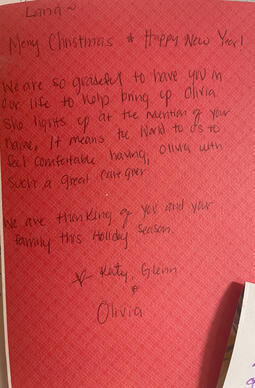 Lana ~
Merry Christmas & Happy New Year!
We are so grateful to have you in
our life to help bring up Olivia
She lights up at the mention of your
name, It means the World to us to
feel comfortable having Olivia with
such a great care giver
We are thinking of you and your
family this Holiday Season.
Katy, Glenn
&
Olivia